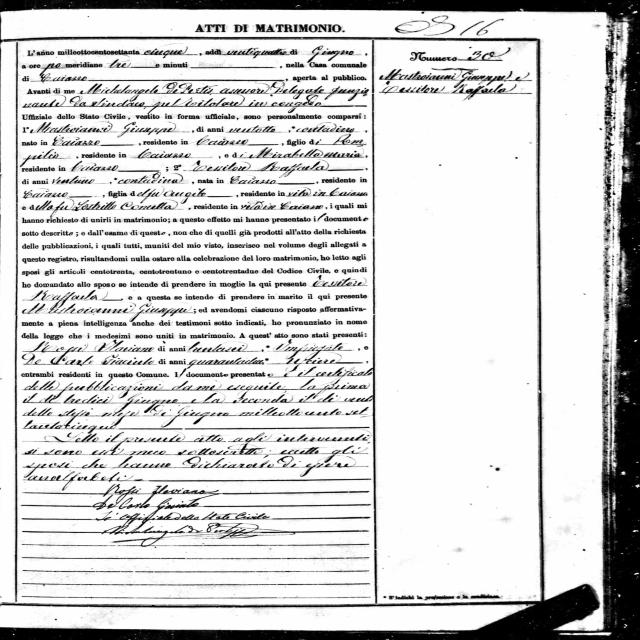 ATTI DI MATRIMONIO.
16
L'anno milleottocentosettanta cinque, addì ventiquattro di Giugno,
a ore po meridiane tre e minuti , nella Casa comunale
di Caiazzo , aperta al pubblico.
Avanti di me Michelangelo De
Uffiziale dello Stato Civile, vestito in forma uffiziale, sono personalmente comparsi:
1° Mastroianni Giuseppe, di anni ventotto contadino
nato in Caiazzo, residente in Caiazzo, figlio di Pom
pilio, residente in Caiazzo, e di Mirabella Maria
residente in Caiazzo; 2° Tessitore Raffaela
di anni ventuno contadina, nata in Caiazzo, residente in
Caiazzo, figlia di residente in vita in Caiazzo
e di residente in vita in Caiazzo, i quali mi
hanno richiesto di unirli in matrimonio; a questo effetto mi hanno presentato il documento
sotto descritto; e dall'esame di questo, non che di quelli già prodotti all'atto della richiesta
delle pubblicazioni, i quali tutti, muniti del mio visto, inserisco nel volume degli allegati a
questo registro, risultandomi nulla ostare alla celebrazione del loro matrimonio, ho letto agli
sposi gli articoli centotrenta, centotrentuno e centotrentadue del Codice Civile, e quindi
ho domandato allo sposo se intende di prendere in moglie la qui presente Tessitore
Raffaela e a questa se intende di prendere in marito il qui presente
Mastroianni Giuseppe; ed avendomi ciascuno risposto affermativamente
a piena intelligenza anche dei testimoni sotto indicati, ho pronunziato in nome
della legge che i medesimi sono uniti in matrimonio. A quest'atto sono stati presenti:
Rossi Flaviano di anni Impiegato, e
De Carlo Giacinto di anni quarantadue
entrambi residenti in questo Comune. Il documento presentato è il certificato
delle pubblicazioni da me eseguite, la prima
il dì tredici Giugno, e la seconda il dì venti
dello stesso mese di Giugno milleottocento set
tantacinque
Letto il presente atto agli intervenuti
si sono con meco sottoscritti, eccetto gli
sposi che hanno dichiarato di essere
analfabeti
Rossi Flaviano
De Carlo Giacinto
L'Uffiziale dello Stato Civile
Numero 30
Mastroianni Giuseppe e
Tessitore Raffaela
* S'indichi la professione o la condizione.